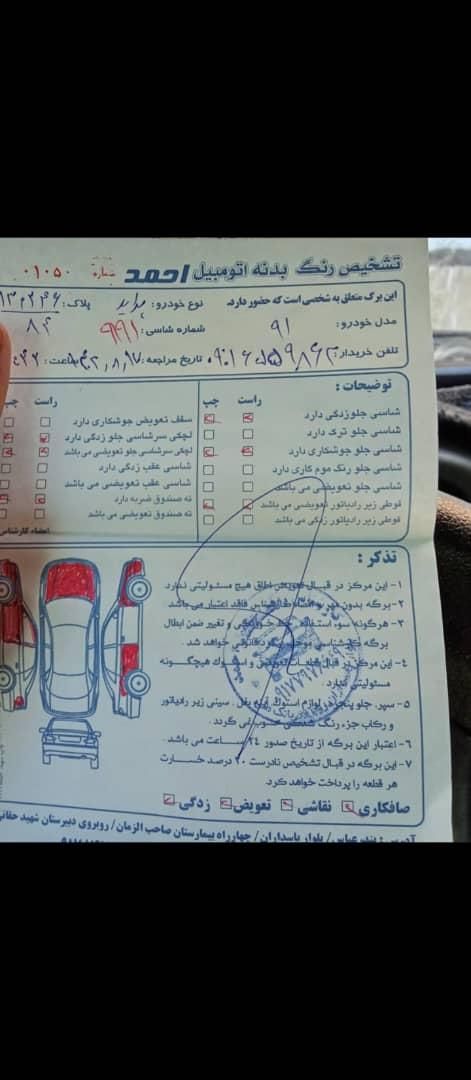 تشخیص رنگ بدنه اتومبیل احمد شماره: ۰۱۰۵۰
این برگ متعلق به شخصی است که حضور دارد. نوع خودرو: پراید پلاک:
مدل خودرو: ۹۱ شماره شاسی: ۹۹۱ ۸۴
تلفن خریدار: تاریخ مراجعه: ساعت:
توضیحات :
راست چپ راست چپ
شاسی جلوزدگی دارد سقف تعویض جوشکاری دارد
شاسی جلو ترک دارد لچکی سرشاسی جلو زدگی دارد
شاسی جلو جوشکاری دارد لچکی سرشاسی جلو تعویضی می باشد
شاسی جلو رنگ موم کاری دارد شاسی عقب زدگی دارد
شاسی جلو تعویضی می باشد شاسی عقب تعویضی می باشد
قوطی زیر رادیاتور تعویضی می باشد ته صندوق ضربه دارد
قوطی زیر رادیاتور زدگی می باشد ته صندوق تعویضی می باشد
امضاء کارشناس
تذکر :
۱- این مرکز در قبال تعویض اطاق هیچ مسئولیتی ندارد
۲- برگه بدون مهر و امضاء کارشناس فاقد اعتبار می باشد
۳- هرگونه سوء استفاده، خط خوردگی و تغییر ضمن ابطال
برگه کارشناسی موجب پیگرد قانونی خواهد شد .
۴- این مرکز در قبال قطعات تعویض و استوک هیچگونه
مسئولیتی ندارد.
۵- سپر، جلو پنجره، لوازم استوک، آینه بغل، سینی زیر رادیاتور
و رکاب جزء رنگ شدگی محسوب نمی گردد .
۶- اعتبار این برگه از تاریخ صدور ۲۴ ساعت می باشد .
۷- این برگه در قبال تشخیص نادرست ۲۰ درصد خسارت
هر قطعه را پرداخت خواهد کرد.
صافکاری نقاشی تعویض زدگی
آدرس : بندرعباس / بلوار پاسداران / چهارراه بیمارستان صاحب الزمان / روبروی دبیرستان شهید حقانی